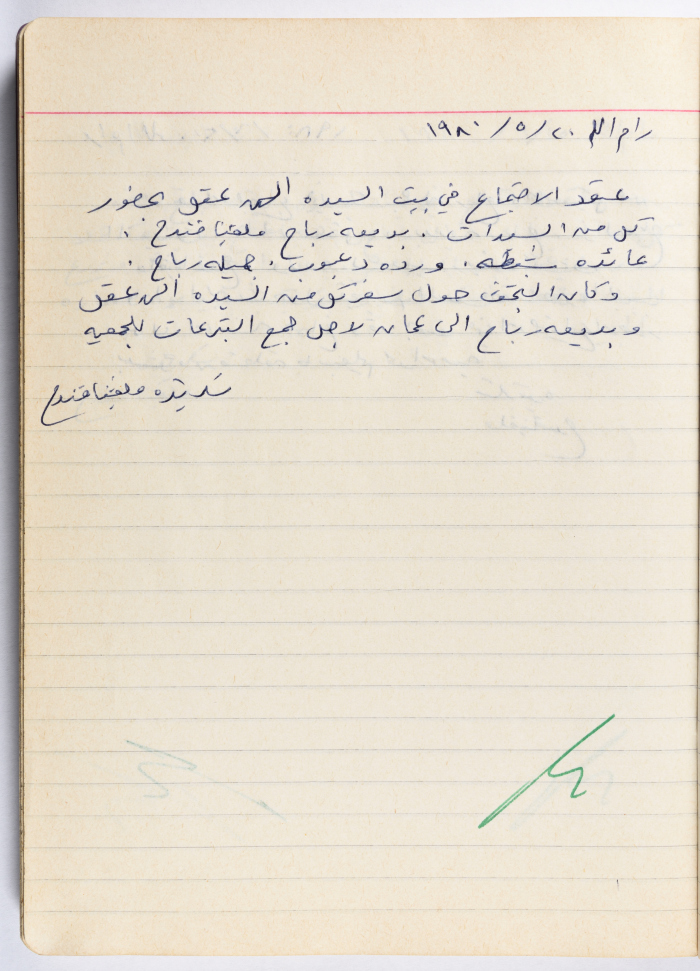 رام الله ٢٠/٥/١٩٨٠
عقد الاجتماع في بيت السيده السن عقل بحضور
كل من السيدات . بديعه رباح ملفينا قندح .
عائده شبطه . ورده دعبوب . جميله رباح .
وكان البحث حول سفر كل من السيده السن عقل
وبديعه رباح الى عمان لاجل جمع التبرعات للجمعيه
سكرتيره ملفينا قندح